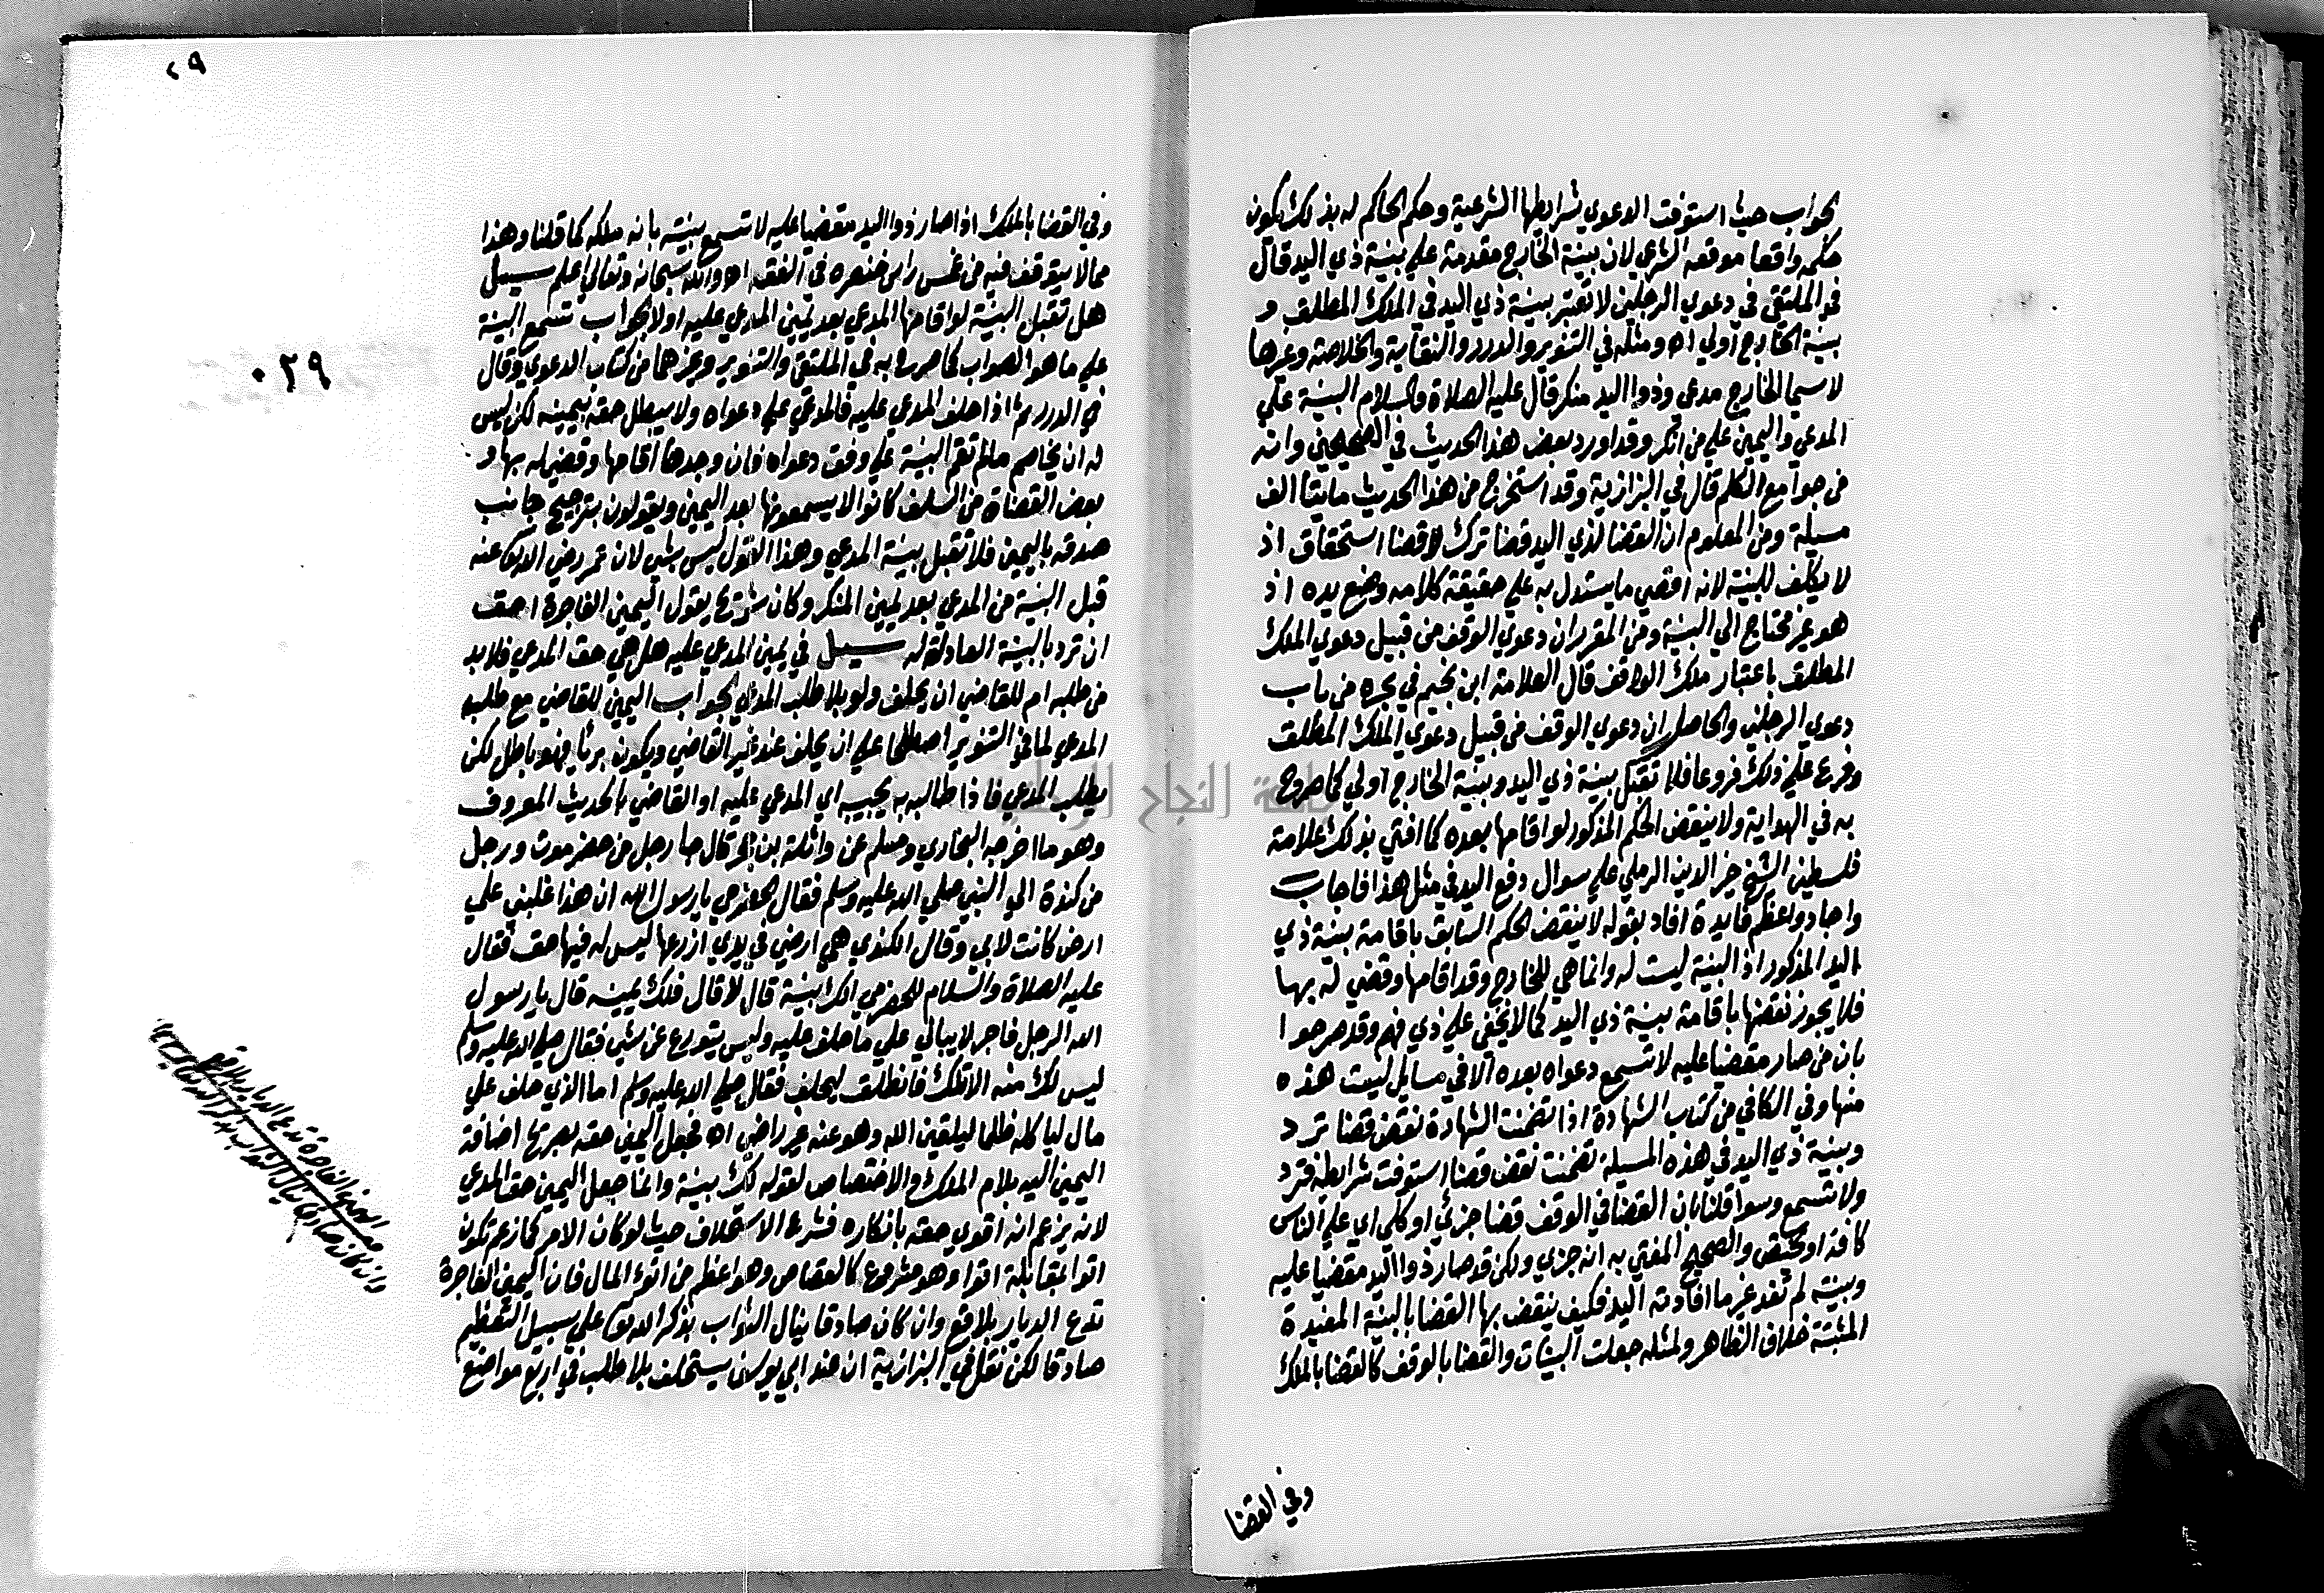 الجواب حيث استوفت الدعوي شرايطها الشرعية وحكم الحاكم له بذلك يكون
حكمه واقعا موقعه الشرعي لان بينة الخارج مقدمة علي بينة ذي اليد قال
في الملتقي في دعوي الرجلين لا تعتبر بينة ذي اليد في الملك المطلق و
بينة الخارج اولي اه ومثله في التنوير والدرر والنقاية والخلاصة وغيرها
لاسيما الخارج مدعي وذوا اليد منكر قال عليه الصلاة والسلام البينة علي
المدعي واليمين علي من انكر وقد اورد بعض هذا الحديث في الصحيحين وانه
من جوامع الكلم قال في البزازية وقد استخرج من هذا الحديث مايتا الف
مسيلة ومن المعلوم ان القضا لذي اليد قضا ترك لا قضا استحقاق اذ
لا يكلف للبينة لانه اقضي ما يستدل به علي حقيقة كلامه وضع يده اذ
هو غير محتاج الي البينة ومن المقرر ان دعوي الوقف من قبيل دعوي الملك
المطلق باعتبار ملك الواقف قال العلامة ابن نجيم في بحره من باب
دعوي الرجلين والحاصل ان دعوي الوقف من قبيل دعوي الملك المطلق
وفرع علي ذلك فروعا فلا تقبل بينة ذي اليد وبينة الخارج اولي كما صرح
به في الهداية ولا ينقض الحكم المذكور لو اقامها بعده كما افتي بذلك علامة
فلسطين الشيخ خير الدين الرملي علي سوال دفع اليد في مثل هذا فاجاب
واجاد ولعظم فايدة افاد بقوله لا ينقض الحكم السابق باقامة بينة ذي
اليد المذكور اذ البينة ليست له وانما هي للخارج وقد اقامها وقضي له بها
فلا يجوز نقضها باقامة بينة ذي اليد كما لا يخفي علي ذي فهم وقد صرحوا
بان من صار مقضيا عليه لا تسمع دعواه بعده الا في مسايل ليست هذه
منها وفي الكافي من كتاب الشهادة اذا تضمنت الشهادة نقض قضا ترد
وبينة ذي اليد في هذه المسيلة تضمنت نقض قضا استوفت شرايطه فترد
ولا تسمع وسوا قلنا بان القضا في الوقف قضا جزئي او كلي اي علي الناس
كافة او يختص والصحيح المفتي به انه جزي ولكن قد صار ذوا اليد مقضيا عليه
وبينته لم تفد غير ما افادته اليد فكيف ينقض بها القضا بالبينة المفيدة
المثبتة خلاف الظاهر ولمثله جعلت البينات والقضا بالوقف كالقضا بالملك
وفي القضا
٢٩
٠٢٩
وفي القضا بالملك اذا صار ذوا اليد مقضيا عليه لا تسمع بينته بانه ملكه كما قلنا وهذا
مما لا يتوقف فيه من غمس راس خنصره في الفقه اه والله سبحانه وتعالي اعلم سيل
هل تقبل البينة لو اقامها المدعي بعد يمين المدعي عليه او لا الجواب تسمع البينة
علي ما هو الصواب كما صرح به في الملتقي والتنوير وغيرهما من كتاب الدعوي وقال
في الدرر ثم اذا حلف المدعي عليه فالمدعي علي دعواه ولا يبطل حقه بيمينه لكن ليس
له ان يخاصم ما لم تقم البينة علي وفق دعواه فان وجدها اقامها وقضي له بها و
بعض القضاة من السلف كانوا لا يسمعونها بعد اليمين ويقولون بترجيح جانب
صدقه باليمين فلا تقبل بينة المدعي وهذا القول ليس بشي لان عمر رضي الله عنه
قبل البينة من المدعي بعد يمين المنكر وكان شريح يقول اليمين الفاجرة احق
ان ترد بالبينة العادلة له سيل في يمين المدعي عليه هل هي حق المدعي فلا بد
من طلبه ام للقاضي ان يحلف ولو بلا طلب المدعي الجواب اليمين للقاضي مع طلب
المدعي لما في التنوير اصطلحا علي ان يحلف عند غير القاضي ويكون بريا فهو باطل لكن
بطلب المدعي فاذا طالبه به يجيبه اي المدعي عليه او القاضي بالحديث المعروف
وهو ما اخرجه البخاري ومسلم عن وائلة بن حجر قال جا رجل من حضرموت ورجل
من كندة الي النبي صلي الله عليه وسلم فقال الحضرمي يا رسول الله ان هذا غلبني علي
ارض كانت لابي وقال الكندي هي ارضي في يدي ازرعها ليس له فيها حق فقال
عليه الصلاة والسلام للحضرمي الك بينة قال لا قال فلك يمينه قال يا رسول
الله الرجل فاجر لا يبالي علي ما حلف عليه وليس يتورع عن شي فقال صلي الله عليه وسلم
ليس لك منه الا ذلك فانطلق ليحلف فقال صلي الله عليه وسلم اما الذي حلف علي
مال لياكله ظلما ليلقين الله وهو عنه غير راضي اه فجعل اليمين حقه بصريح اضافة
اليمين اليه بلام الملك والاختصاص لقوله لك بينة وانما جعل اليمين حق المدعي
لانه يزعم انه اقوي حقه بانكاره فشرع الاستحلاف حيث لو كان الامر كما زعم تكون
اتوا بمقابلة اتوا وهو مشروع كالقصاص وهو اعظم من اتوء المال فان اليمين الفاجرة
تدع الديار بلاقع وان كان صادقا ينال الثواب بذكر الله تعالي علي سبيل التعظيم
صادقا لكن نقل في البزازية ان عند ابي يوسف يستحلف بلا طلب في اربع مواضع
اليمين الفاجرة تدع الديار بلاقع
وان كان صادقا ينال الثواب بذكر الله تعالي